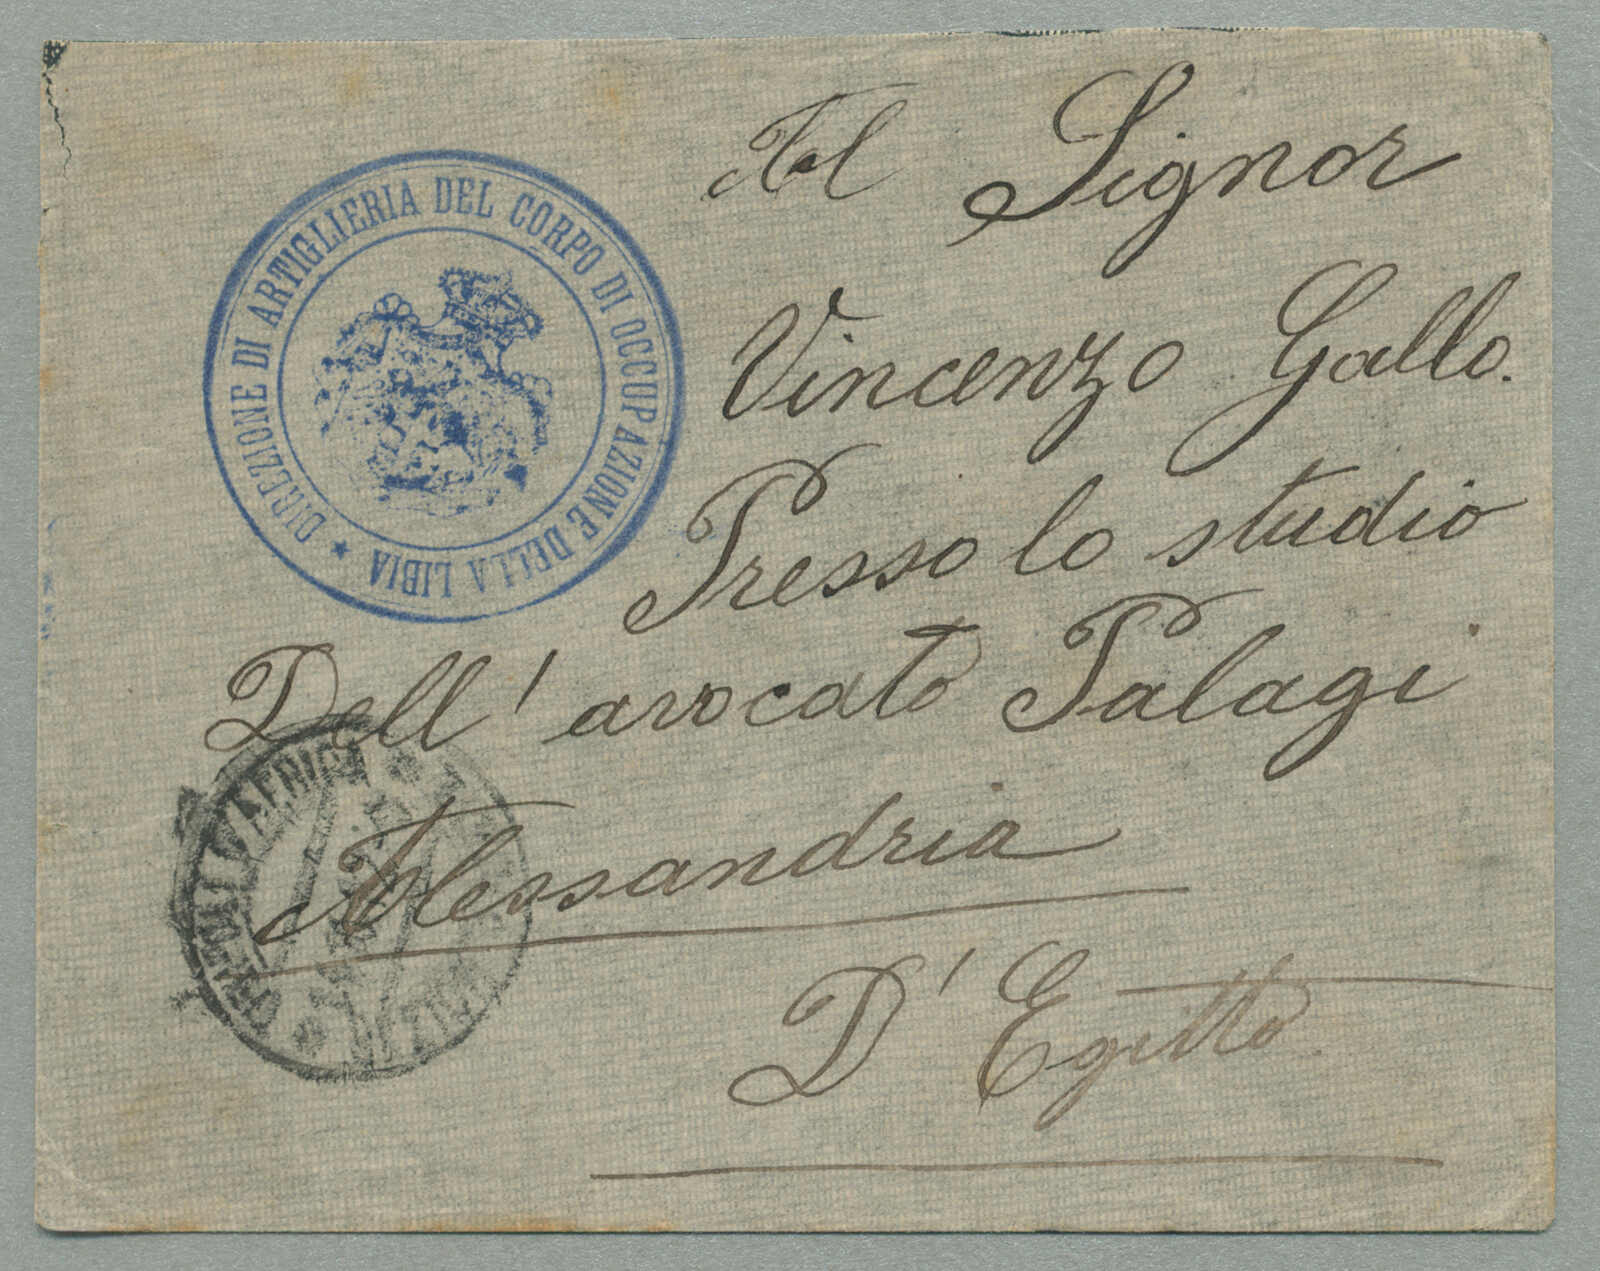 DIREZIONE DI ARTIGLIERIA DEL CORPO DI OCCUPAZIONE DELLA LIBIA
Al Signor
Vincenzo Gallo.
Presso lo studio
Dell' avocato Palagi
Alessandria
D' Egitto
TRIPOLI D'AFRICA